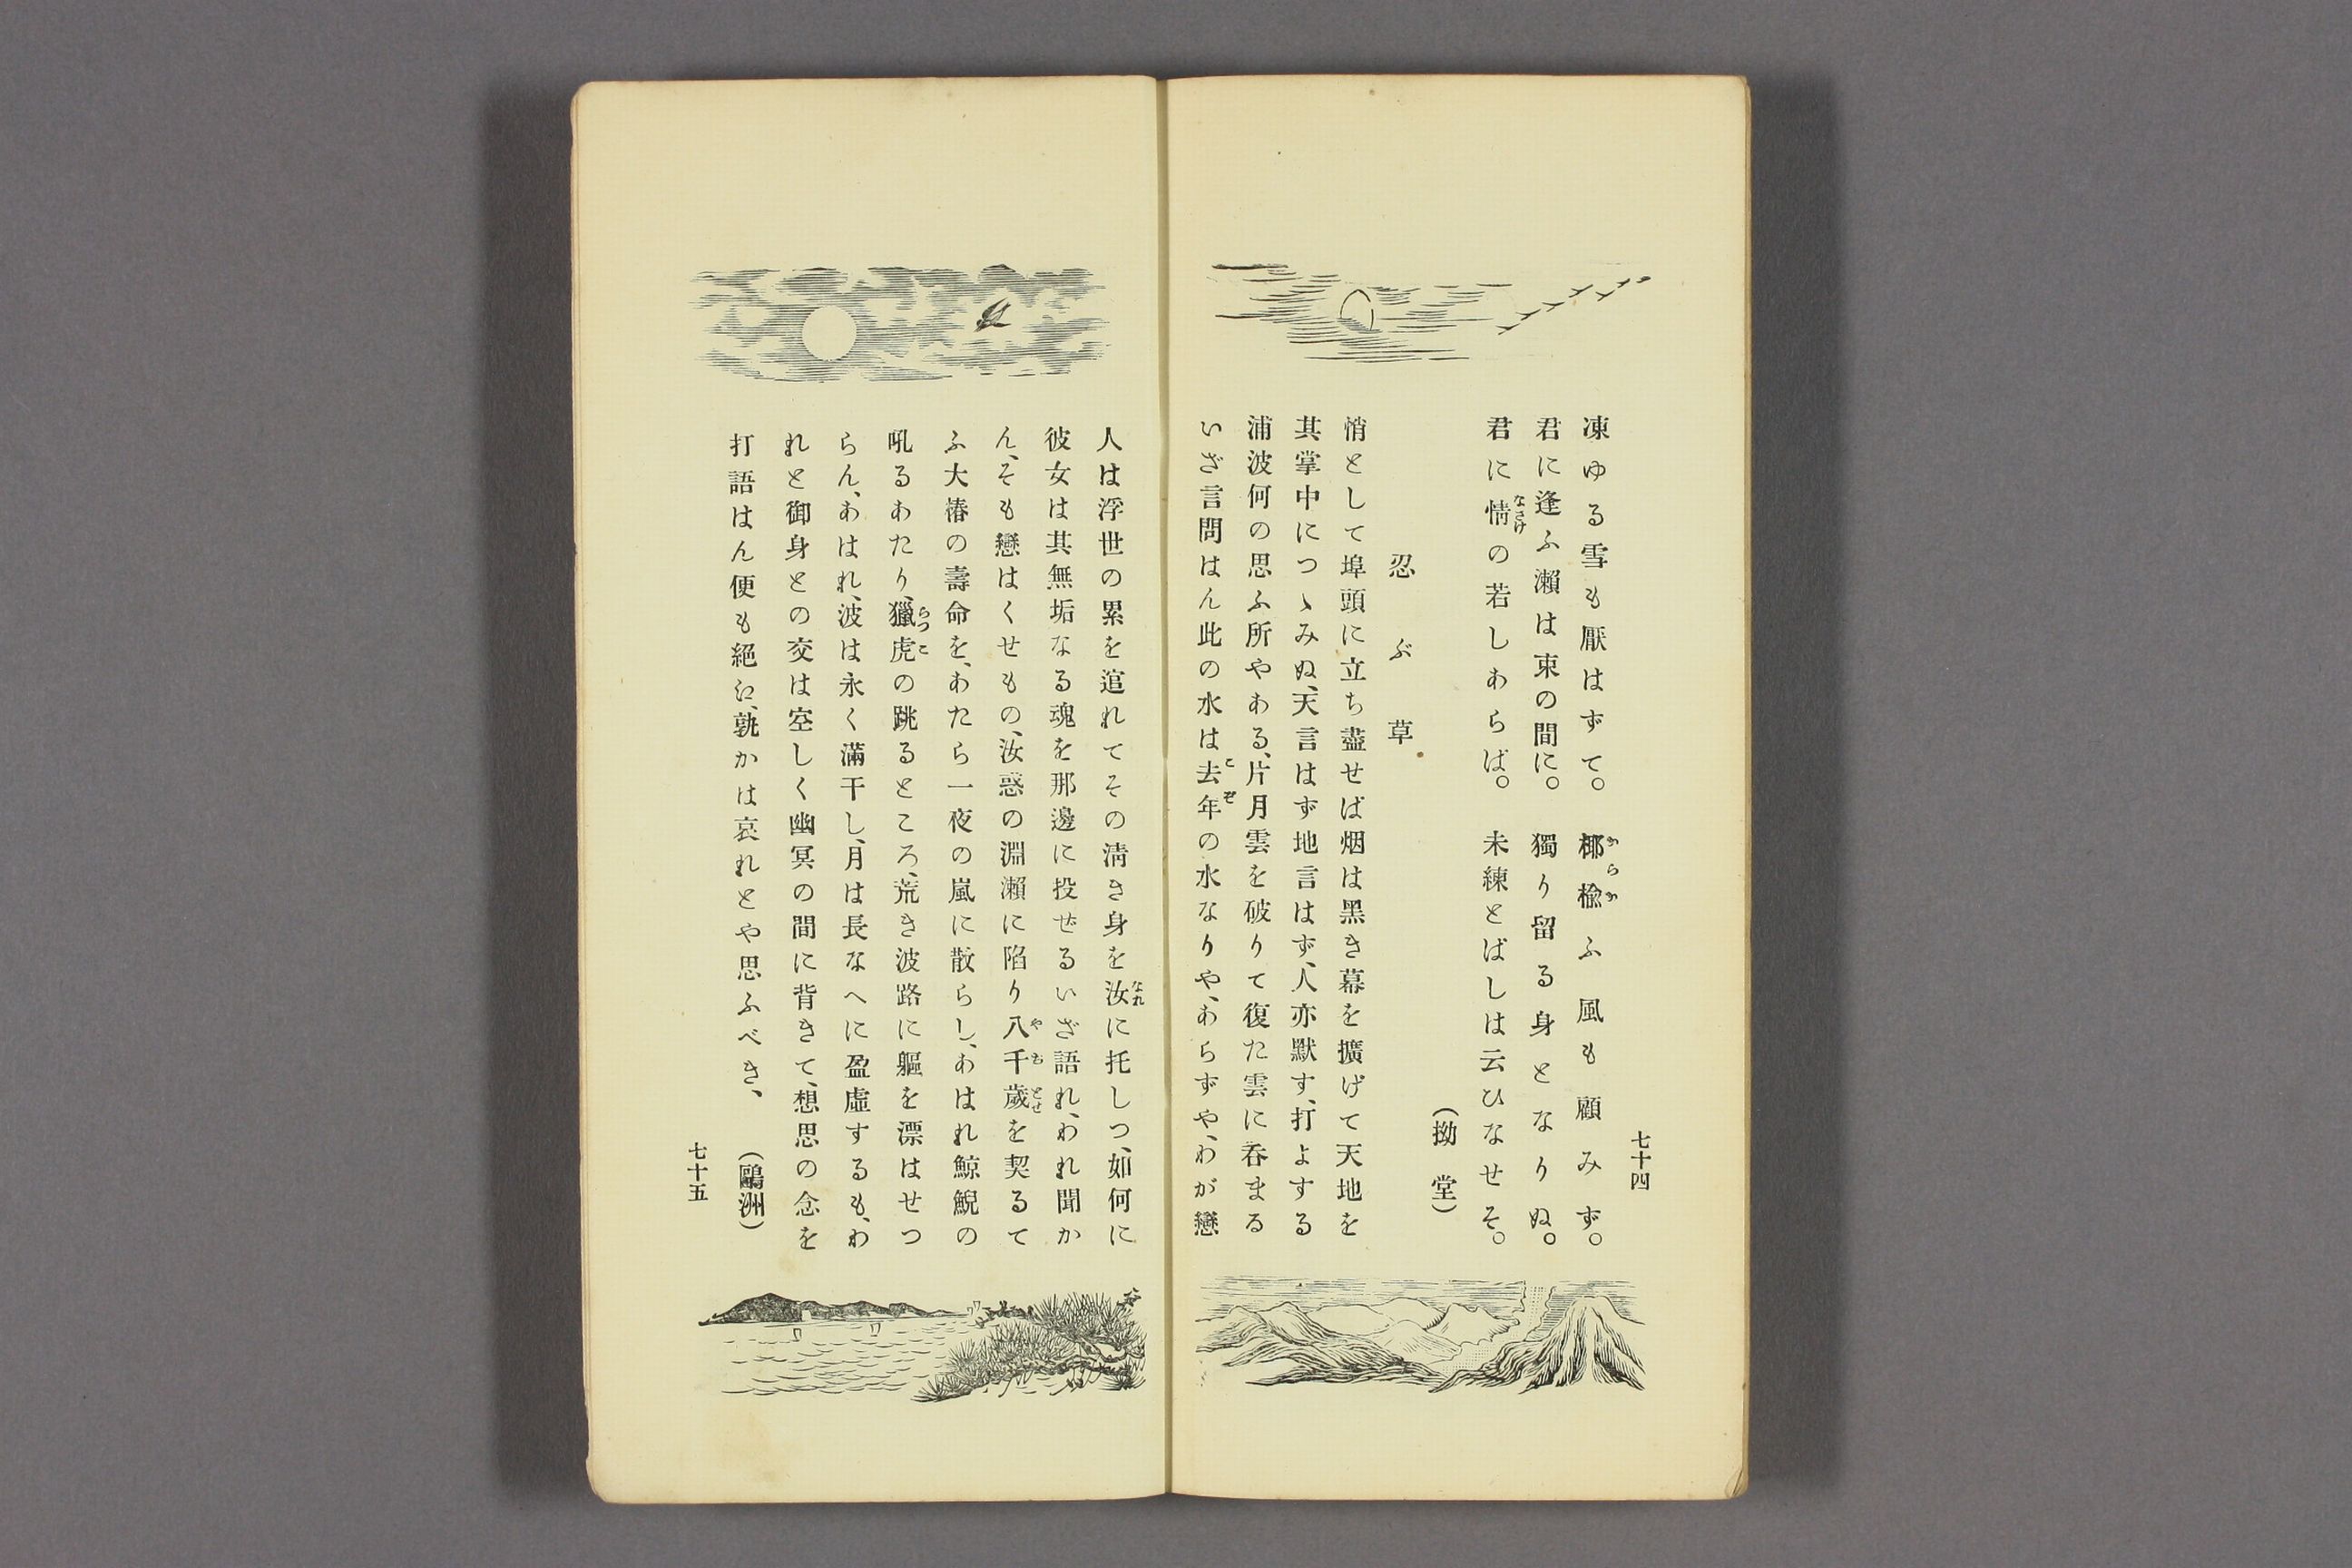 七十四
凍ゆる雪も厭はずて。　椰楡ふ風も顧みず。
君に逢ふ瀬は束の間に。　獨り留る身となりぬ。
君に情の若しあらば。　未練とばしは云ひなせそ。
（拗堂）
忍ぶ草
悄として埠頭に立ち盡せば烟は黑き幕を擴げて天地を
其掌中につゝみぬ、天言はず地言はず、人亦默す、打よする
浦波何の思ふ所やある、片月雲を破りて復た雲に呑まる
いざ言問はん此の水は去年の水なりや、あらずや、わが戀
人は浮世の累を逭れてその淸き身を汝に托しつ、如何に
彼女は其無垢なる魂を那邊に投ぜるいざ語れ、われ聞か
ん、そも戀はくせもの、汝惑の淵瀬に陷り八千歲を契るて
ふ大椿の壽命を、あたら一夜の嵐に散らし、あはれ鯨鯢の
吼るあたり、獵虎の跳るところ、荒き波路に軀を漂はせつ
らん、あはれ、波は永く滿干し、月は長なへに盈虛するも、わ
れと御身との交は空しく幽冥の間に背きて、想思の念を
打語はん便も絕江、孰かは哀れとや思ふべき、
（鷗洲）
七十五